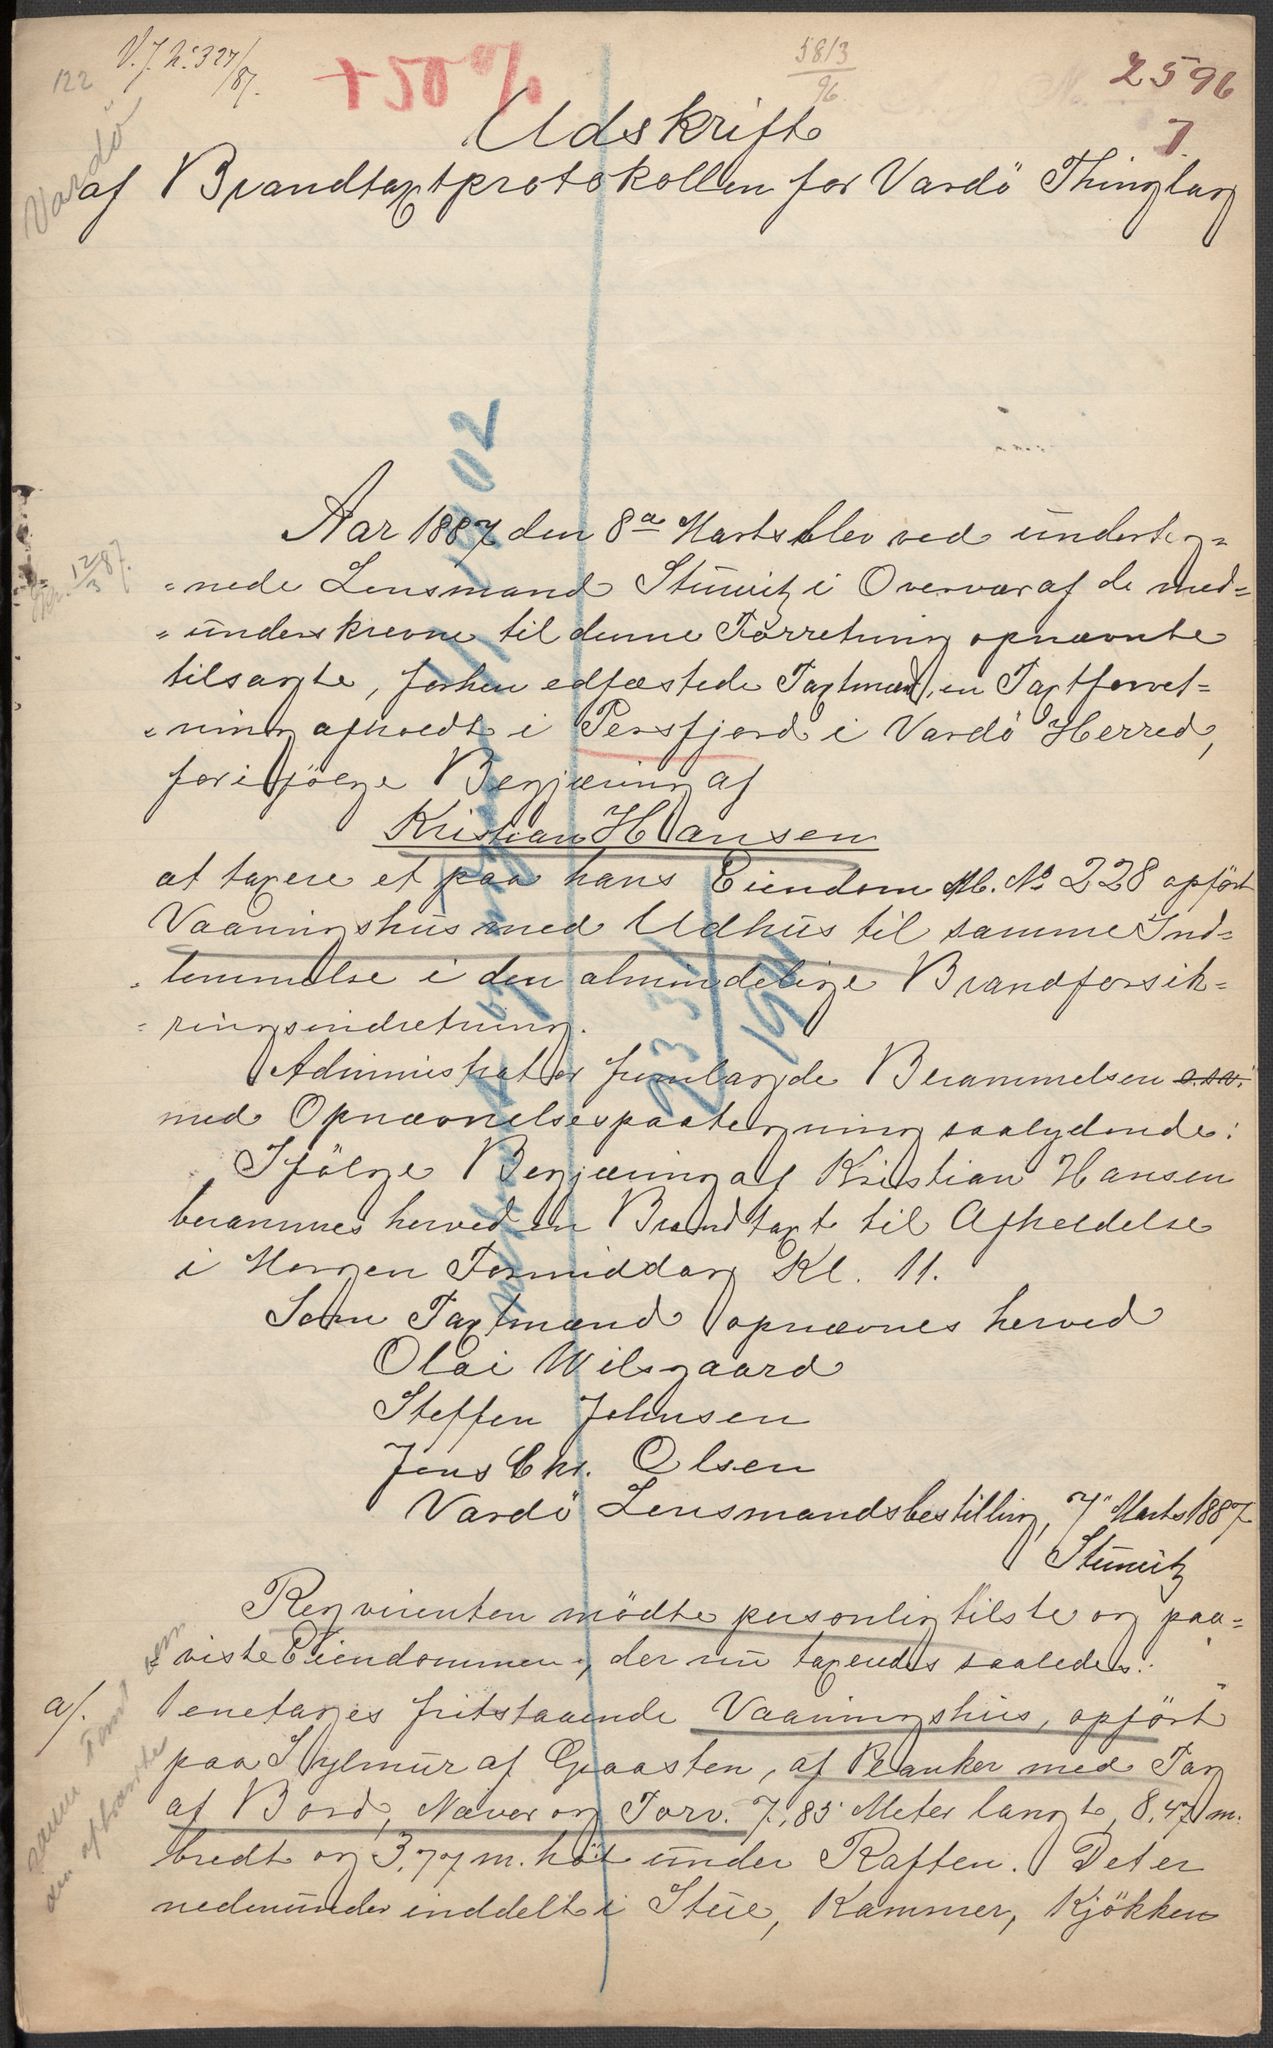 122
V. J. No 327/87.
+ 50 %
5813/96
2596
7.
Vardö
Udskrift
af Brandtaxtprotokollen for Vardö Thinglag
Aar 1887 den 8de Marts blev ved underteg=
=nede Lensmand Stuwitz i Overvær af de med=
=underskrevne til denne Forretning opnævnte
tilsagte, forhen edfæstede Taxtmænd, en Taxtforret=
=ning afholdt i Persfjord i Vardö Herred,
for ifølge Begjæring af
Kristian Hansen
at taxere et paa hans Eiendom M. No 228 opført
Vaaningshus med Udhus til samme Ind=
=lemmelse i den almindelige Brandforsik=
=ringsindretning.
Administrator fremlagde Berammelsen o.s.v.
med Opnævnelsespaategning saalydende:
Ifölge Begjæring af Kristian Hansen
berammes herved en Brandtaxt til Afholdelse
i Morgen Formiddag Kl. 11.
Som Taxtmænd opnævnes herved
Olai Wilsgaard
Steffen Johnsen
Jens Chr. Olsen
Vardö Lensmandsbestilling, 7de Marts 1887
Stuwitz
Reqvirenten mödte personlig tilstede og paa=
=viste Eiendommen, der nu taxeredes saaledes:
a/. 1 enetages fritstaaende Vaaningshus, opfört
paa Sylmur af Graasten, af Planker med Tag
af Bord, Næver og Torv. 7,85 Meter langt, 8,47 m.
bredt og 3,77 m. höit under Raften. Det er
nedenunder inddelt i Stue, Kammer, Kjökken
12/3 87.
1/1 1902
23 3/ 1911